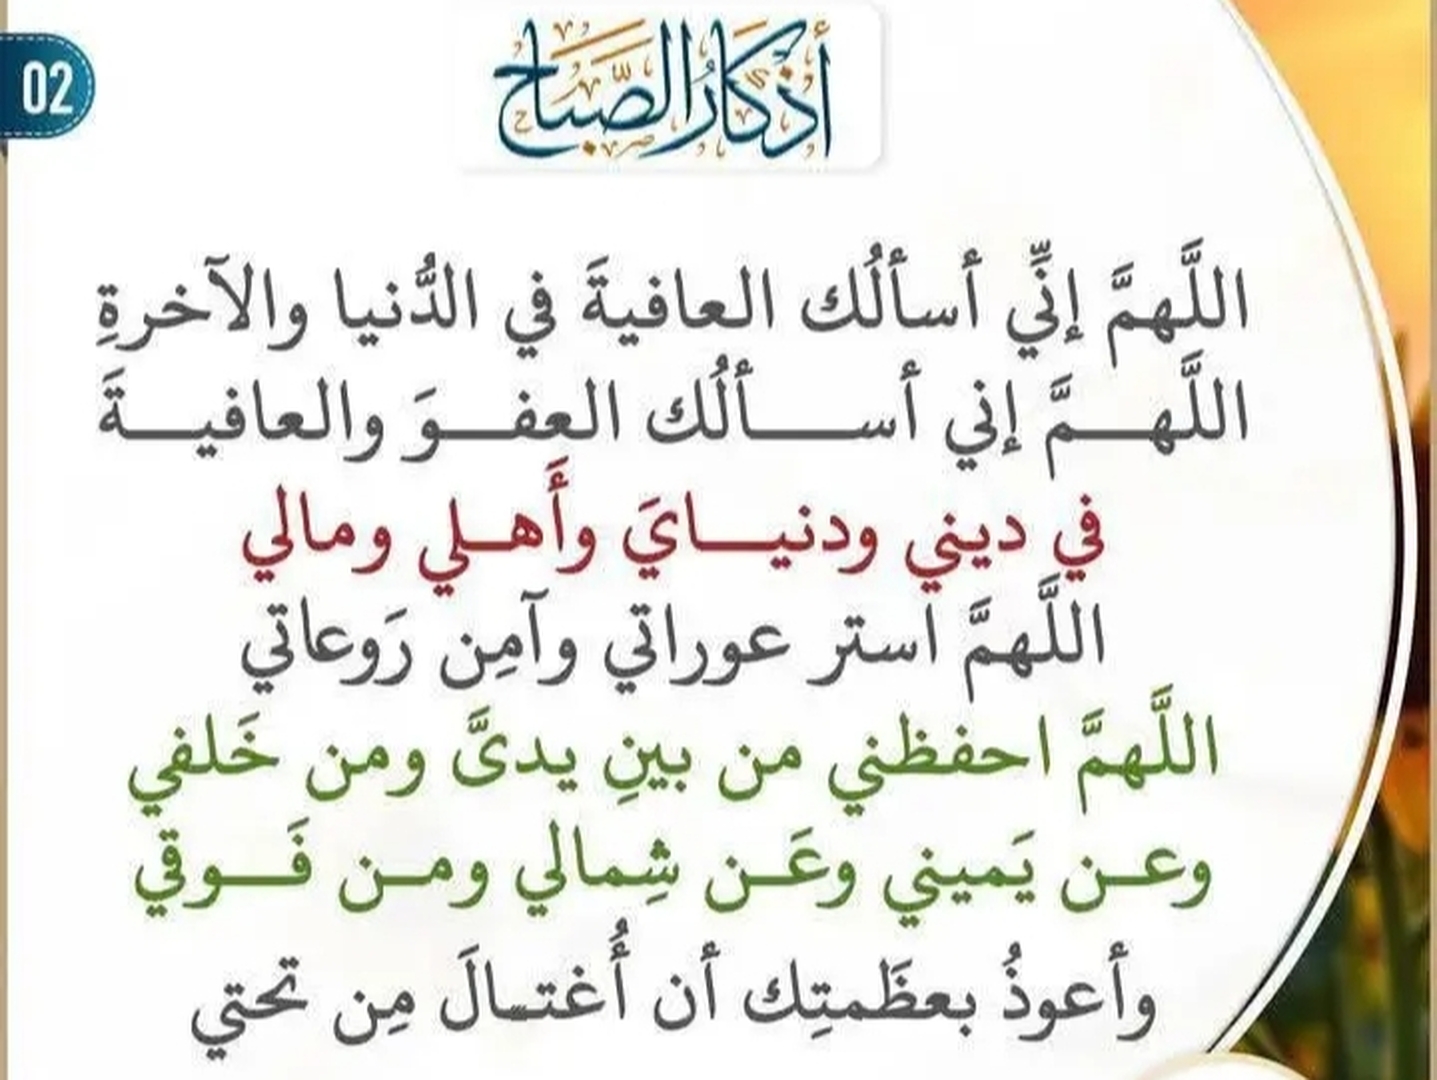 02
أَذْكَارُ الصَّبَاح
اللَّهمَّ إنِّي أسألُك العافيةَ في الدُّنيا والآخرةِ
اللَّهـــمَّ إني أســـــألُك العفـــوَ والعافيـــةَ
في ديني ودنيـــايَ وأَهـلي ومالي
اللَّهمَّ استر عوراتي وآمِن رَوعاتي
اللَّهمَّ احفظني من بينِ يدىَّ ومن خَلفي
وعـن يَميني وعَـن شِمالي ومـن فَـــوقي
وأعوذُ بعظَمتِك أن أُغتـالَ مِن تحتي